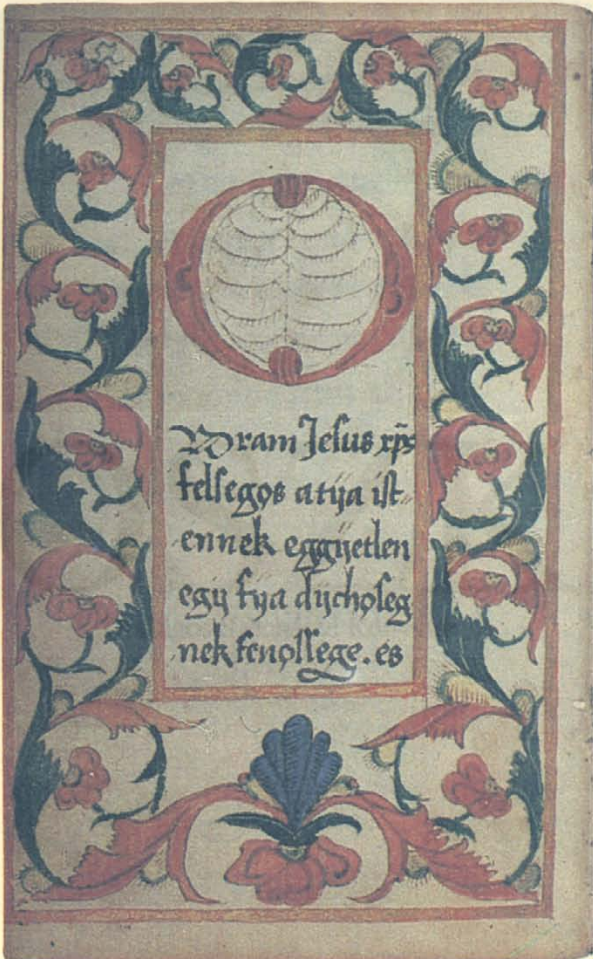 O
Uram Jesus xp̄s
felsegos atÿa ist-
ennek eggÿetlen
egÿ fÿa dÿcholeg
nek fenossege. es